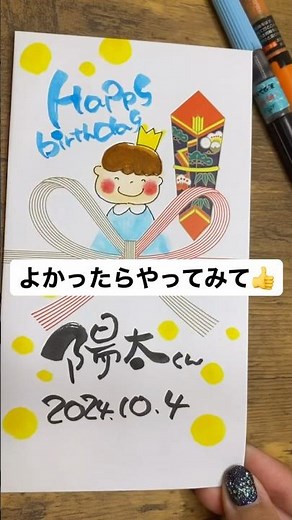 Happy
birthday
よかったらやってみて👍
陽太くん
2024.10.4